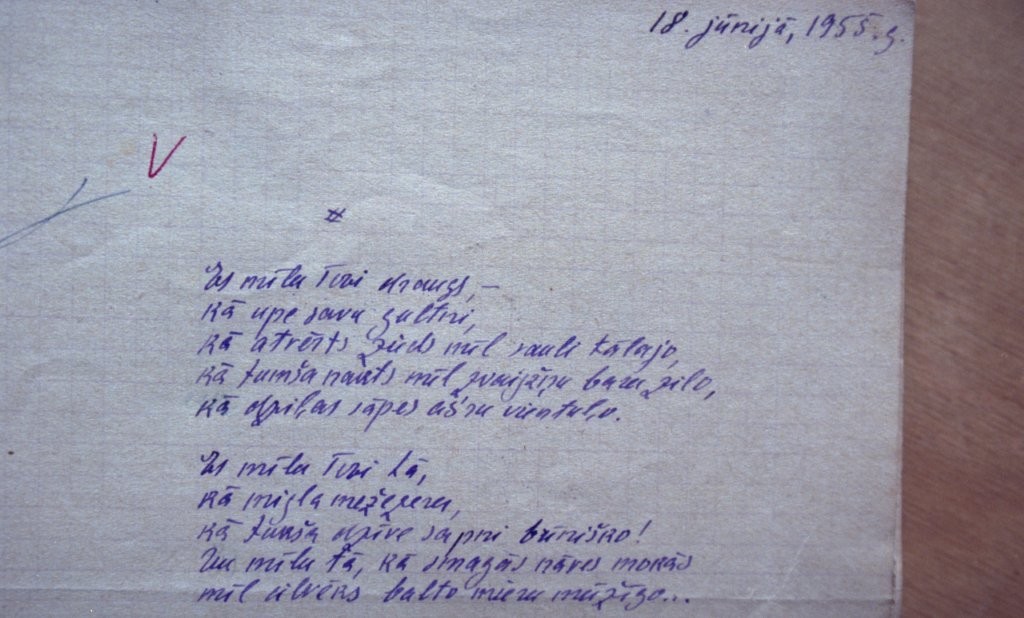 18. jūnijā, 1955. g.
V
#
Es mīlu Tevi draugs, –
kā upe savu gultni,
kā atvērts zieds mīl sauli tālajo,
kā tumša nakts mīl zvaigžņu baru zilo,
kā dziļas sāpes
Es mīlu Tevi tā,
kā migla mežezeru,
kā tumša dzīve sapni brīnišķo!
Un mīlu tā, kā smagās nāves mokās
mīl cilvēks balto mieru mūžīgo...